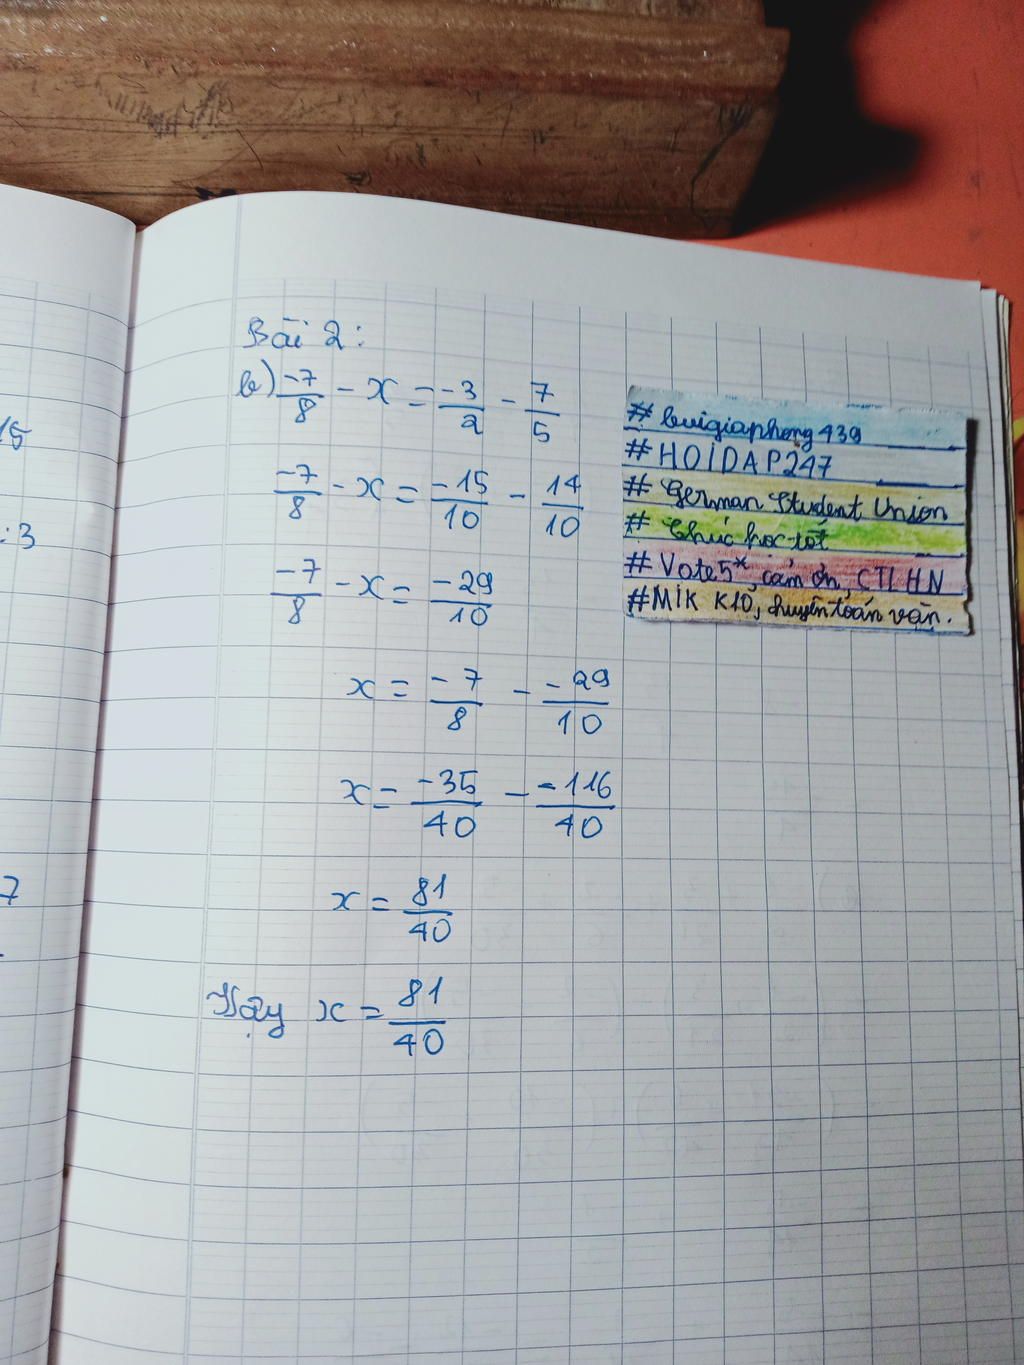 Bài 2:
b) -7/8 - x = -3/2 - 7/5
-7/8 - x = -15/10 - 14/10
-7/8 - x = -29/10
x = -7/8 - -29/10
x = -35/40 - -116/40
x = 81/40
Vậy x = 81/40
# buigiaphong439
# HOIDAP247
# German Student Union
# Chúc học tốt
# Vote 5*, cảm ơn, CTLHN
#MIK K10, chuyên toán văn.
15
:3
7